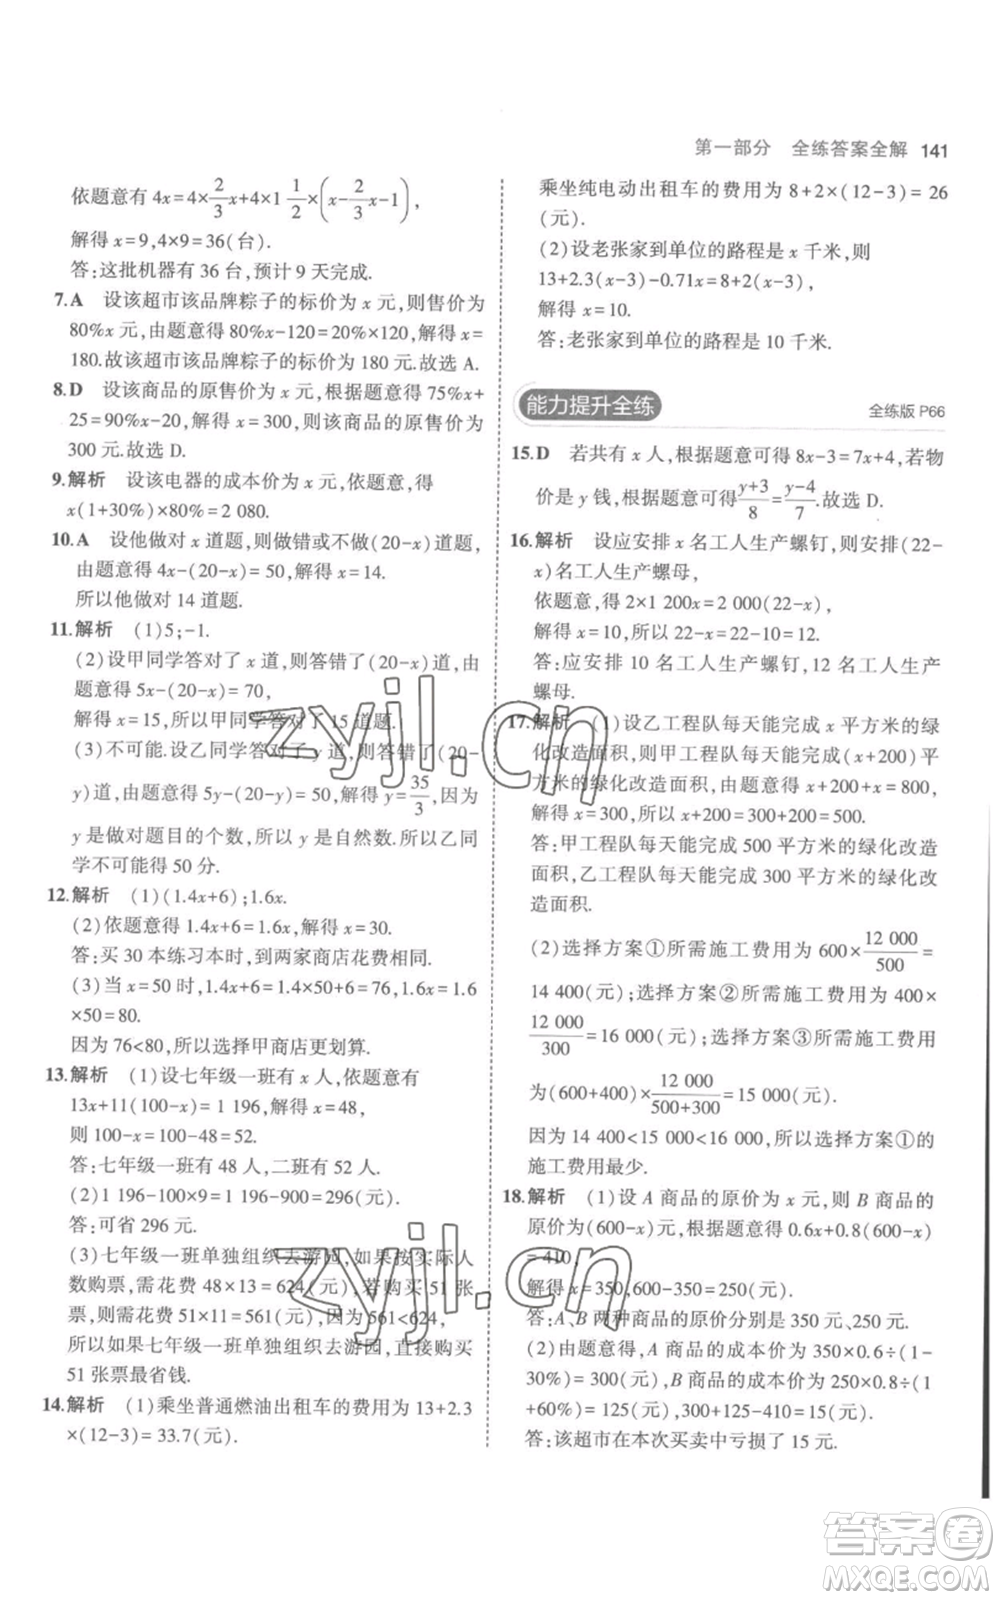 第一部分 全练答案全解 141
依题意有 4x=4×2/3x+4×1 1/2×(x-2/3x-1),
解得 x=9,4×9=36(台).
答:这批机器有 36 台,预计 9 天完成.
7.A 设该超市该品牌粽子的标价为 x 元,则售价为
80%x 元,由题意得 80%x-120=20%×120,解得 x=
180.故该超市该品牌粽子的标价为 180 元.故选 A.
8.D 设该商品的原售价为 x 元,根据题意得 75%x+
25=90%x-20,解得 x=300,则该商品的原售价为
300 元.故选 D.
9.解析 设该电器的成本价为 x 元,依题意,得
x(1+30%)×80%=2 080.
10.A 设他做对 x 道题,则做错或不做(20-x)道题,
由题意得 4x-(20-x)=50,解得 x=14.
所以他做对 14 道题.
11.解析 (1)5;-1.
(2)设甲同学答对了 x 道,则答错了(20-x)道,由
题意得 5x-(20-x)=70,
解得 x=15,所以甲同学答对了 15 道题.
(3)不可能.设乙同学答对了 y 道,则答错了(20-
y)道,由题意得 5y-(20-y)=50,解得 y=35/3,因为
y 是做对题目的个数,所以 y 是自然数.所以乙同
学不可能得 50 分.
12.解析 (1)(1.4x+6);1.6x.
(2)依题意得 1.4x+6=1.6x,解得 x=30.
答:买 30 本练习本时,到两家商店花费相同.
(3)当 x=50 时,1.4x+6=1.4×50+6=76,1.6x=1.6
×50=80.
因为 76<80,所以选择甲商店更划算.
13.解析 (1)设七年级一班有 x 人,依题意有
13x+11(100-x)=1 196,解得 x=48,
则 100-x=100-48=52.
答:七年级一班有 48 人,二班有 52 人.
(2)1 196-100×9=1 196-900=296(元).
答:可省 296 元.
(3)七年级一班单独组织去游园,如果按实际人
数购票,需花费 48×13=624(元),若购买 51 张
票,需花费 51×11=561(元),因为 561<624,
所以如果七年级一班单独组织去游园,那么购买
51 张票最省钱.
14.解析 (1)乘坐普通燃油出租车的费用为 13+2.3
×(12-3)=33.7(元).
乘坐纯电动出租车的费用为 8+2×(12-3)=26
(元).
(2)设老张家到单位的路程是 x 千米,则
13+2.3(x-3)-0.71x=8+2(x-3),
解得 x=10.
答:老张家到单位的路程是 10 千米.
能力提升全练 全练版 P66
15.D 若共有 x 人,根据题意可得 8x-3=7x+4,若物
价是 y 钱,根据题意可得(y+3)/8=(y-4)/7.故选 D.
16.解析 设应安排 x 名工人生产螺钉,则安排(22-
x)名工人生产螺母,
依题意,得 2×1 200x=2 000(22-x),
解得 x=10,所以 22-x=22-10=12.
答:应安排 10 名工人生产螺钉,12 名工人生产
螺母.
17.解析 (1)设乙工程队每天能完成 x 平方米的绿
化改造面积,则甲工程队每天能完成(x+200)平
方米的绿化改造面积,依题意得 x+200+x=800,
解得 x=300,所以 x+200=300+200=500.
答:甲工程队每天能完成 500 平方米的绿化改造
面积,乙工程队每天能完成 300 平方米的绿化改
造面积.
(2)选择方案①所需施工费用为 600×12 000/500=
14 400(元);选择方案②所需施工费用为 400×
12 000/300=16 000(元);选择方案③所需施工费用
为(600+400)×12 000/(500+300)=15 000(元).
因为 14 400<15 000<16 000,所以选择方案①的
施工费用最少.
18.解析 (1)设 A 商品的原价为 x 元,则 B 商品的
原价为(600-x)元,根据题意得 0.6x+0.8(600-x)
=410,
解得 x=350,600-350=250(元).
答:A、B 两种商品的原价分别是 350 元、250 元.
(2)由题意知,A 商品的进价为 350×0.6÷(1-
30%)=300(元),B 商品的进价为 250×0.8÷(1
+60%)=125(元),300+125-410=15(元).
答:该超市在本次买卖中亏损了 15 元.
zyjl.cn
zyjl.cn
答案卷
MXQE.COM